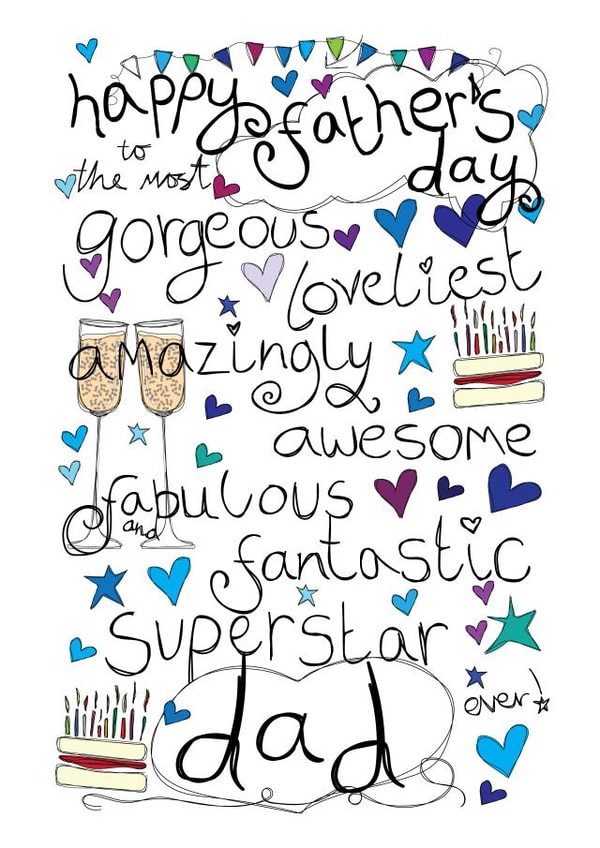 happy father's
day
to
the most
gorgeous
loveliest
amazingly
awesome
fabulous
and
fantastic
superstar
dad
ever!